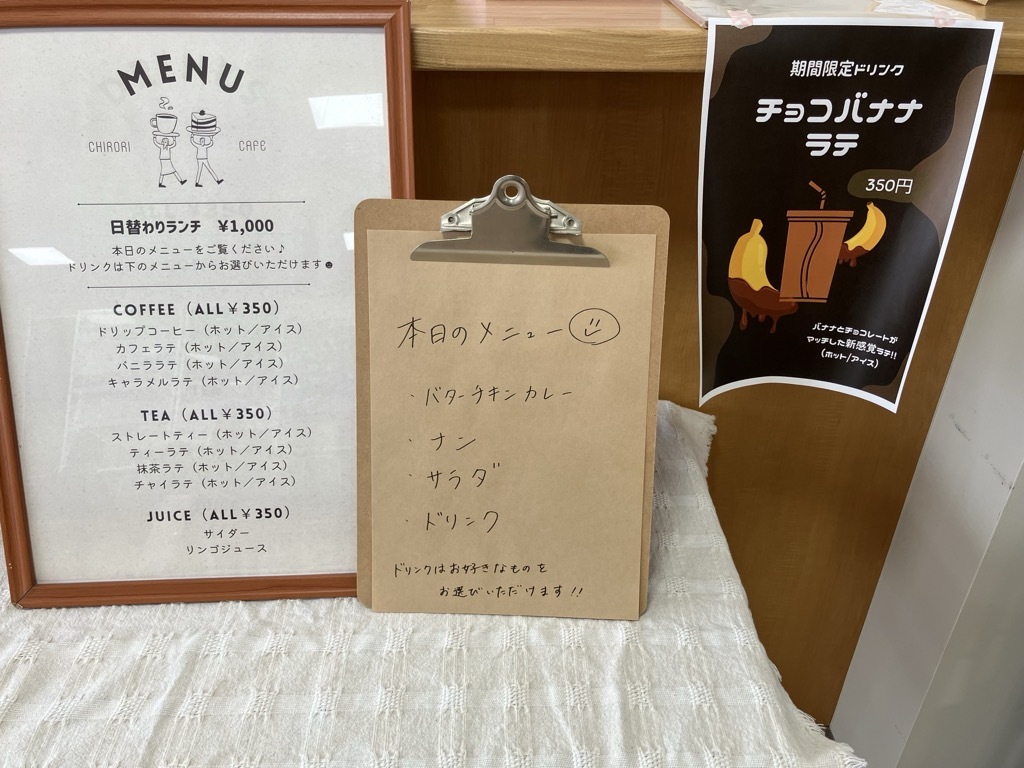 MENU
CHIRORI CAFE
日替わりランチ ¥1,000
本日のメニューをご覧ください♪
ドリンクは下のメニューからお選びいただけます☻
COFFEE (ALL¥350)
ドリップコーヒー(ホット/アイス)
カフェラテ(ホット/アイス)
バニララテ(ホット/アイス)
キャラメルラテ(ホット/アイス)
TEA (ALL¥350)
ストレートティー(ホット/アイス)
ティーラテ(ホット/アイス)
抹茶ラテ(ホット/アイス)
チャイラテ(ホット/アイス)
JUICE (ALL¥350)
サイダー
リンゴジュース
本日のメニュー
・バターチキンカレー
・ナン
・サラダ
・ドリンク
ドリンクはお好きなものを
お選びいただけます!!
期間限定ドリンク
チョコバナナ
ラテ
350円
バナナとチョコレートが
マッチした新感覚ラテ!!
(ホット/アイス)